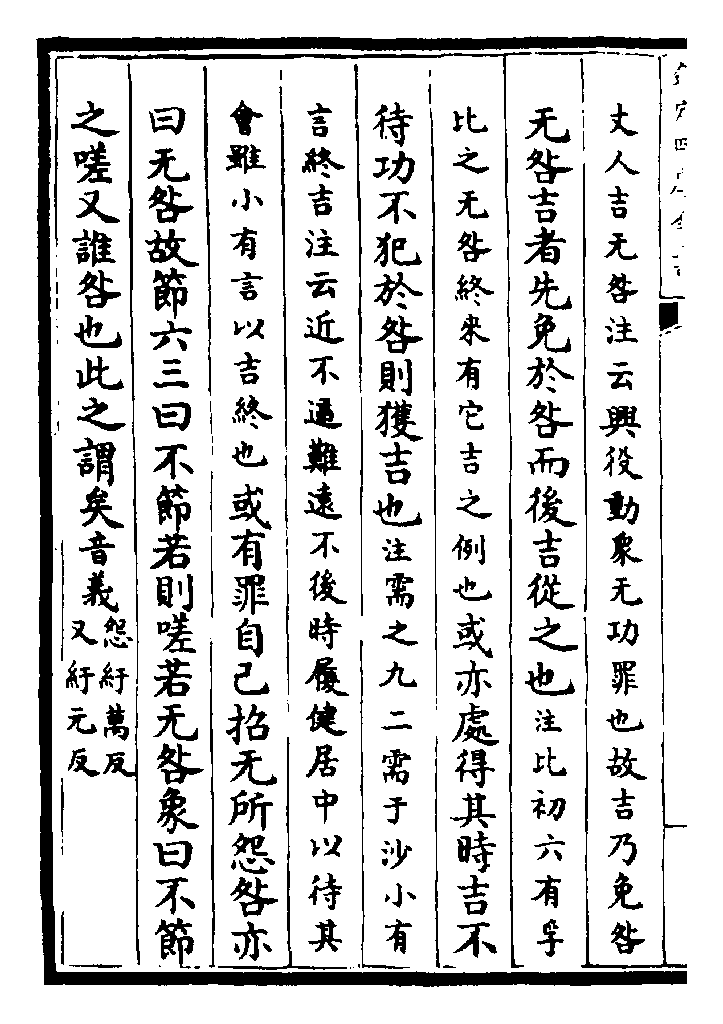 丈人吉无咎注云興役動衆无功罪也故吉乃免咎
无咎吉者先免於咎而後吉從之也注比初六有孚
比之无咎終來有它吉之例也或亦處得其時吉不
待功不犯於咎則獲吉也注需之九二需于沙小有
言終吉注云近不逼難遠不後時履健居中以待其
會雖小有言以吉終也或有罪自己招无所怨咎亦
曰无咎故節六三曰不節若則嗟若无咎象曰不節
之嗟又誰咎也此之謂矣音義怨紆萬反
又紆元反